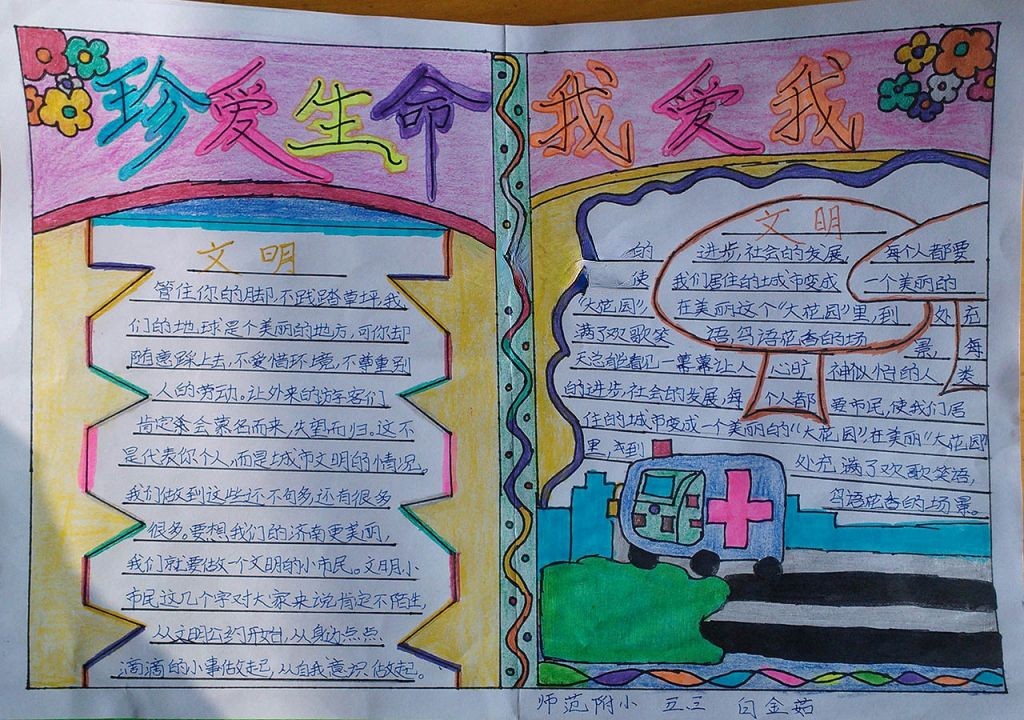 珍爱生命
我爱我
文明
管住你的脚,不践踏草坪,我
们的地球是个美丽的地方,可你却
随意踩上去,不爱惜环境,不尊重别
人的劳动。让外来的游客们
肯定会慕名而来,失望而归。这不
是代表你个人,而是城市文明的情况,
我们做到这些还不句多,还有很多
很多。要想我们的济南更美丽,
我们就要做一个文明的小市民。文明小
市民这几个字对大家来说肯定不陌生,
从文明公约开始,从身边点点
滴滴的小事做起,从自我意识做起。
文明
的 进步,社会的发展, 每个人都要
使 我们居住的城市变成 一个美丽的
“大花园” 在美丽这个“大花园”里,到 处充
满了欢歌笑 语,鸟语花香的场 景,每
天总能看见一幕幕让人 心旷 神似怡的人 类
的进步,社会的发展,每 个人都 要市民,使我们居
住的城市变成一个美丽的“大花园”,在美丽“大花园”
里,到 处充满了欢歌笑语,
鸟语花香的场景。
师范附小 五三 白金茹